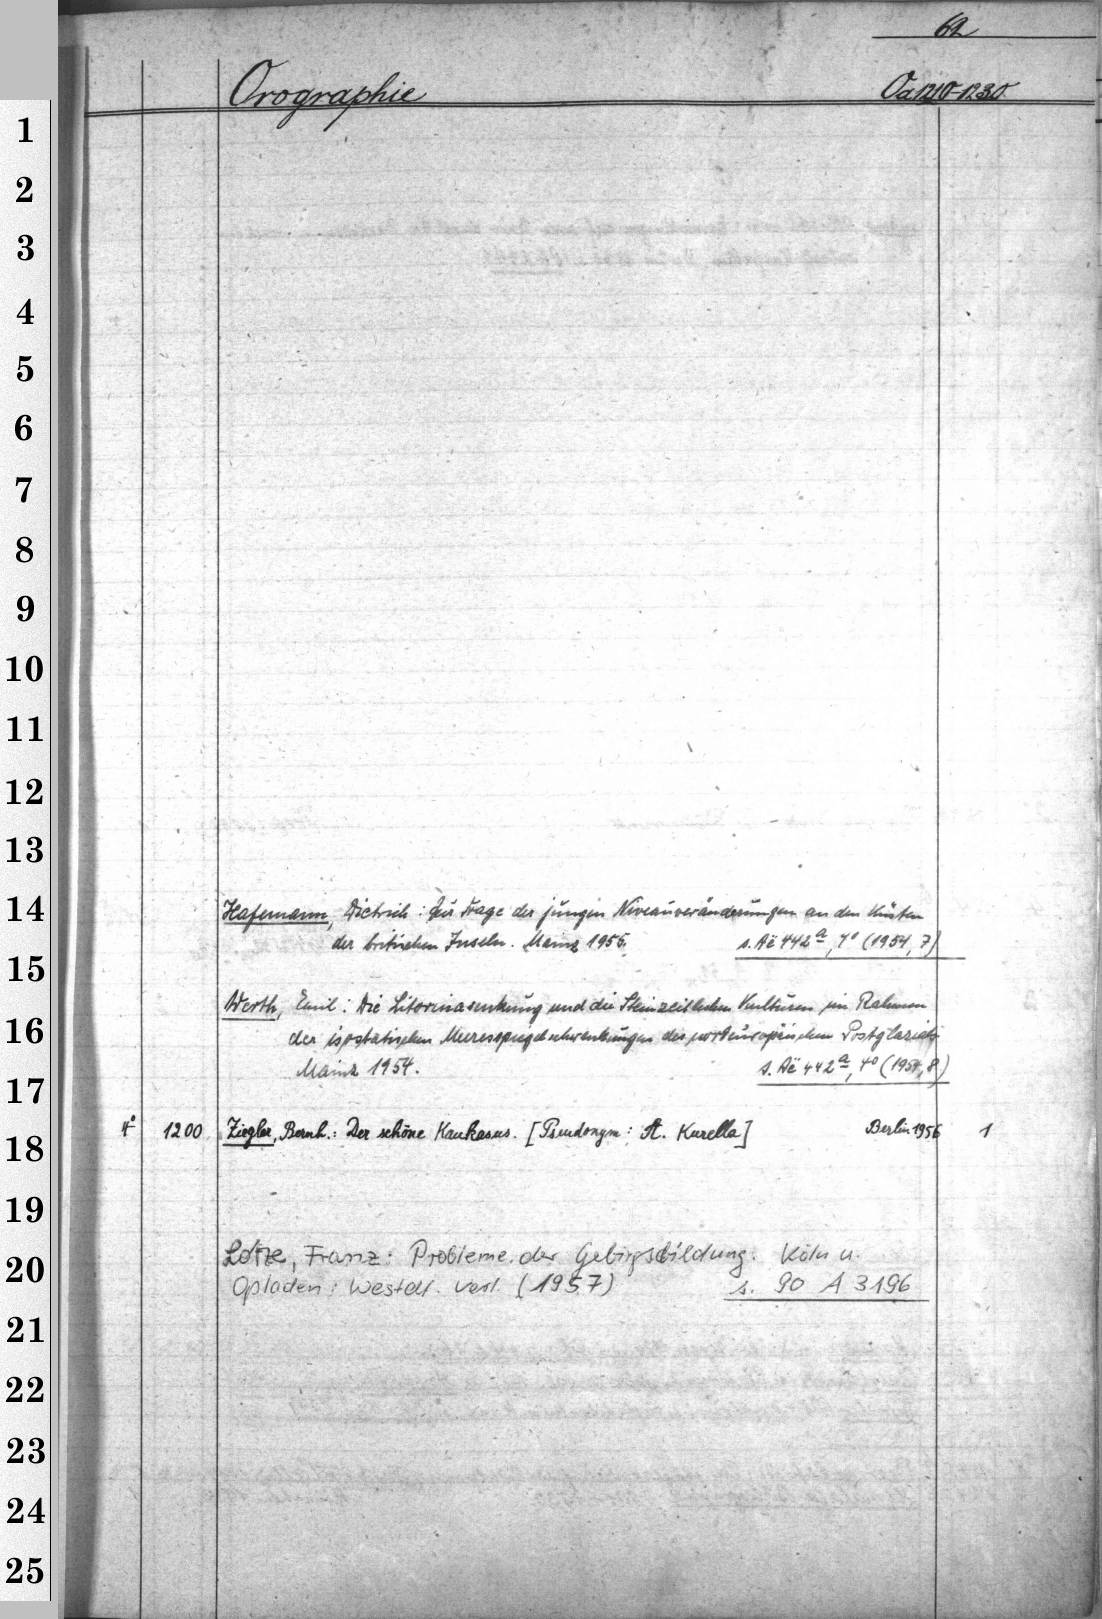 62
Orographie Oa 1210-1230
1
2
3
4
5
6
7
8
9
10
11
12
13
14
Hafemann, Dietrich: Zur Frage der jungen Niveauveränderungen an den Küsten
der britischen Inseln. Mainz 1955. s. Aë 442ª, 4° (1954, 7)
15
Werth, Emil: Die Litorinasenkung und die Steinzeitlichen Kulturen im Rahmen
16
der isostatischen Meeresspiegelschwankungen des nordeuropäischen Postglazials
Mainz 1954. s. Aë 442ª, 4° (1954, 8)
17
4° 1200 Ziegler, Bernh.: Der schöne Kaukasus. [Pseudonym: A. Kurella] Berlin 1956 1
18
19
Lotze, Franz: Probleme der Gebirgsbildung. Köln u.
20
Opladen: Westdt. Verl. (1957) s. 90 A 3196
21
22
23
24
25